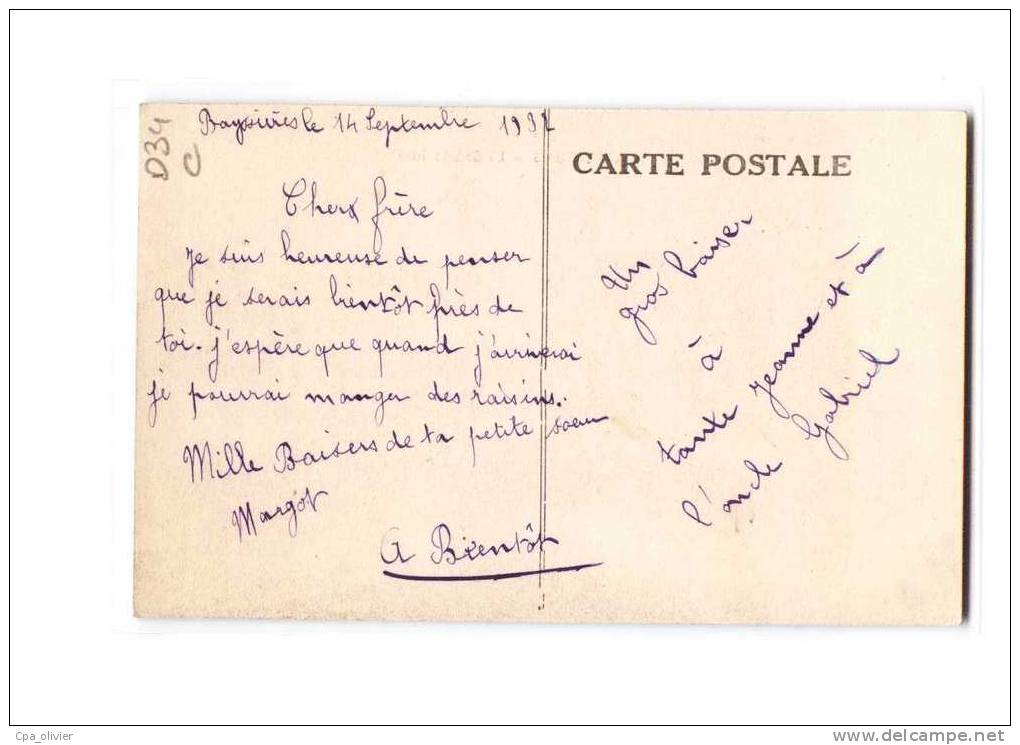 Bayssières le 14 Septembre 1937
D34
C
CARTE POSTALE
Cher frère
Je suis heureuse de penser
que je serais bientôt près de
toi. j'espère que quand j'arriverai
je pourrai manger des raisins.
Mille Baisers de ta petite soeur
Margot
A Bientôt
Un
gros baiser
à
tante Jeanne et à
l'oncle Gabriel
Cpa_olivier
www.delcampe.net